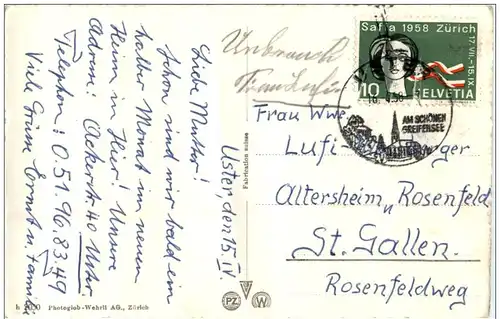 Uster, den 15. IV.
Liebe Mutter!
Schon sind wir bald ein
halber Monat im neuen
Heim in Hier! Unsere
Adresse: Ackerstr 40 Uster
Telephon: 051.96.83.49
Viele Grüsse Ernst u. Familie
Saffa 1958 Zürich
17.VII.-15.IX.
10 HELVETIA
USTER
AM SCHÖNEN
GREIFENSEE
Frau Wwe
Altersheim „Rosenfeld
St. Gallen.
Rosenfeldweg
Fabrication suisse
Photoglob-Wehrli AG., Zürich
PZ W